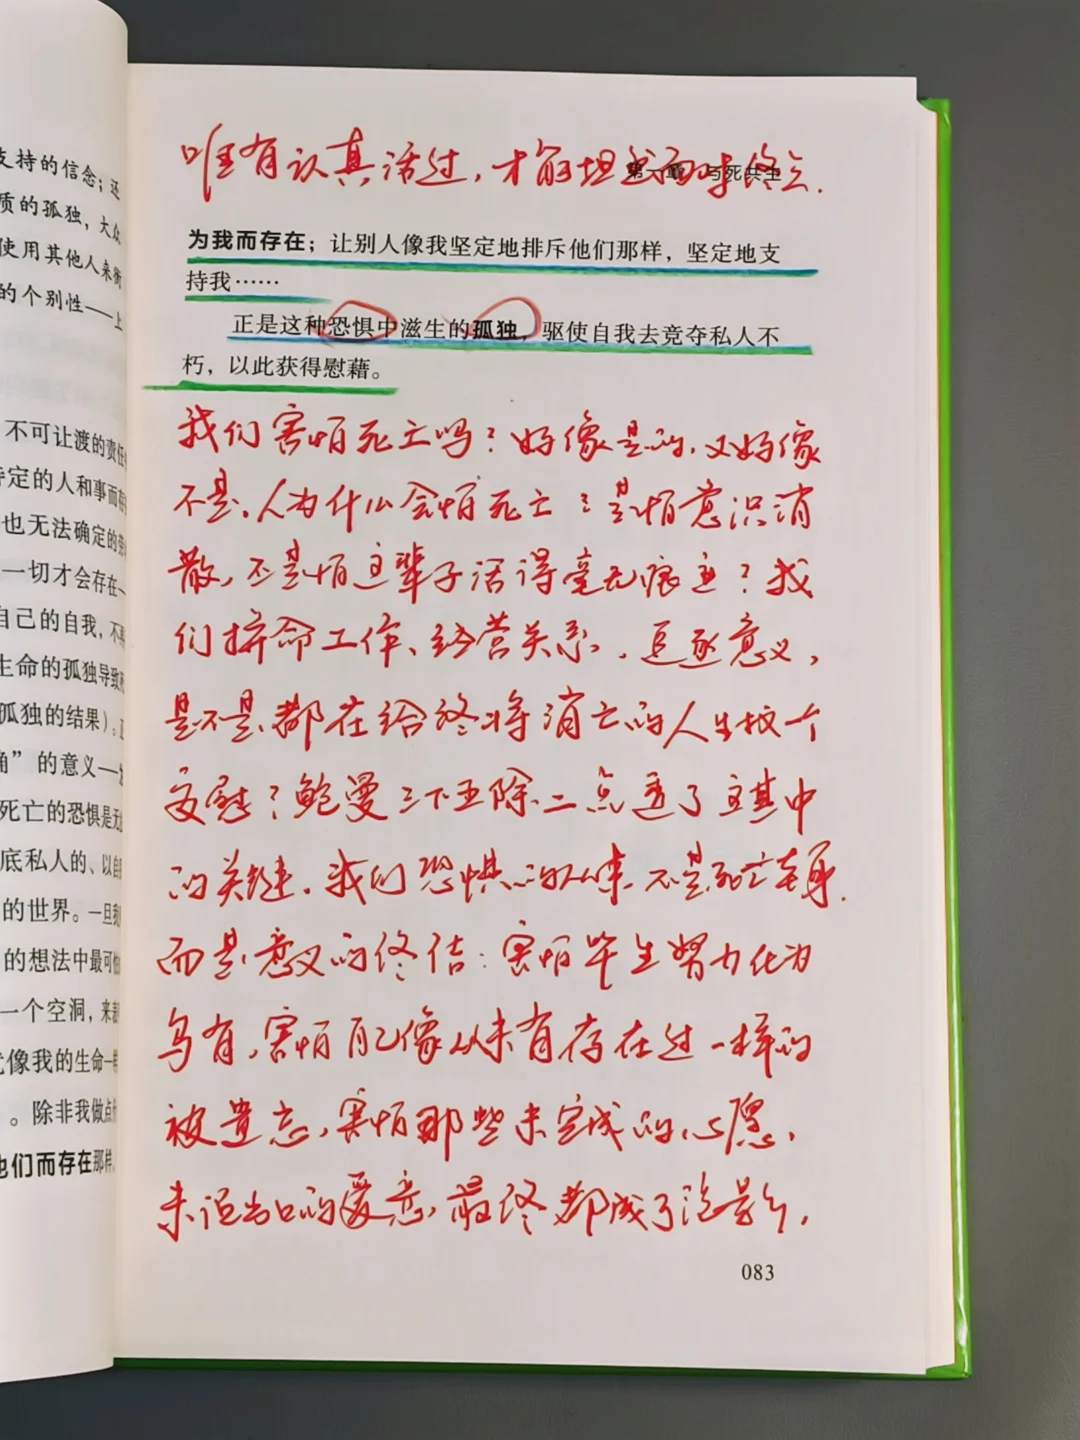 支持的信念；还
质的孤独，大众
使用其他人来衡
的个别性——上
不可让渡的责任
特定的人和事而存
也无法确定的
一切才会存在—
自己的自我，不
生命的孤独导致
孤独的结果）。正
确”的意义——
死亡的恐惧是无
底私人的、以自
的世界。一旦我
的想法中最可怕
一个空洞，来
像我的生命一样
。除非我做点什
他们而存在那样，
唯有认真活过，才能坦然面对终点.
第一章 与死共生
为我而存在；让别人像我坚定地排斥他们那样，坚定地支
持我……
正是这种恐惧中滋生的孤独，驱使自我去竞夺私人不
朽，以此获得慰藉。
我们害怕死亡吗？好像是的，又好像
不是。人为什么会怕死亡？是怕意识消
散，还是怕这辈子活得毫无痕迹？我
们拼命工作、经营关系、追逐意义，
是不是都在给终将消亡的人生找个
安慰？鲍曼三下五除二点透了这其中
的关键。我们恐惧的从来不是死亡本身.
而是意义的终结：害怕毕生努力化为
乌有，害怕自己像从未有存在过一样的
被遗忘，害怕那些未完成的心愿，
未说出口的爱意，最终都成了泡影，
083